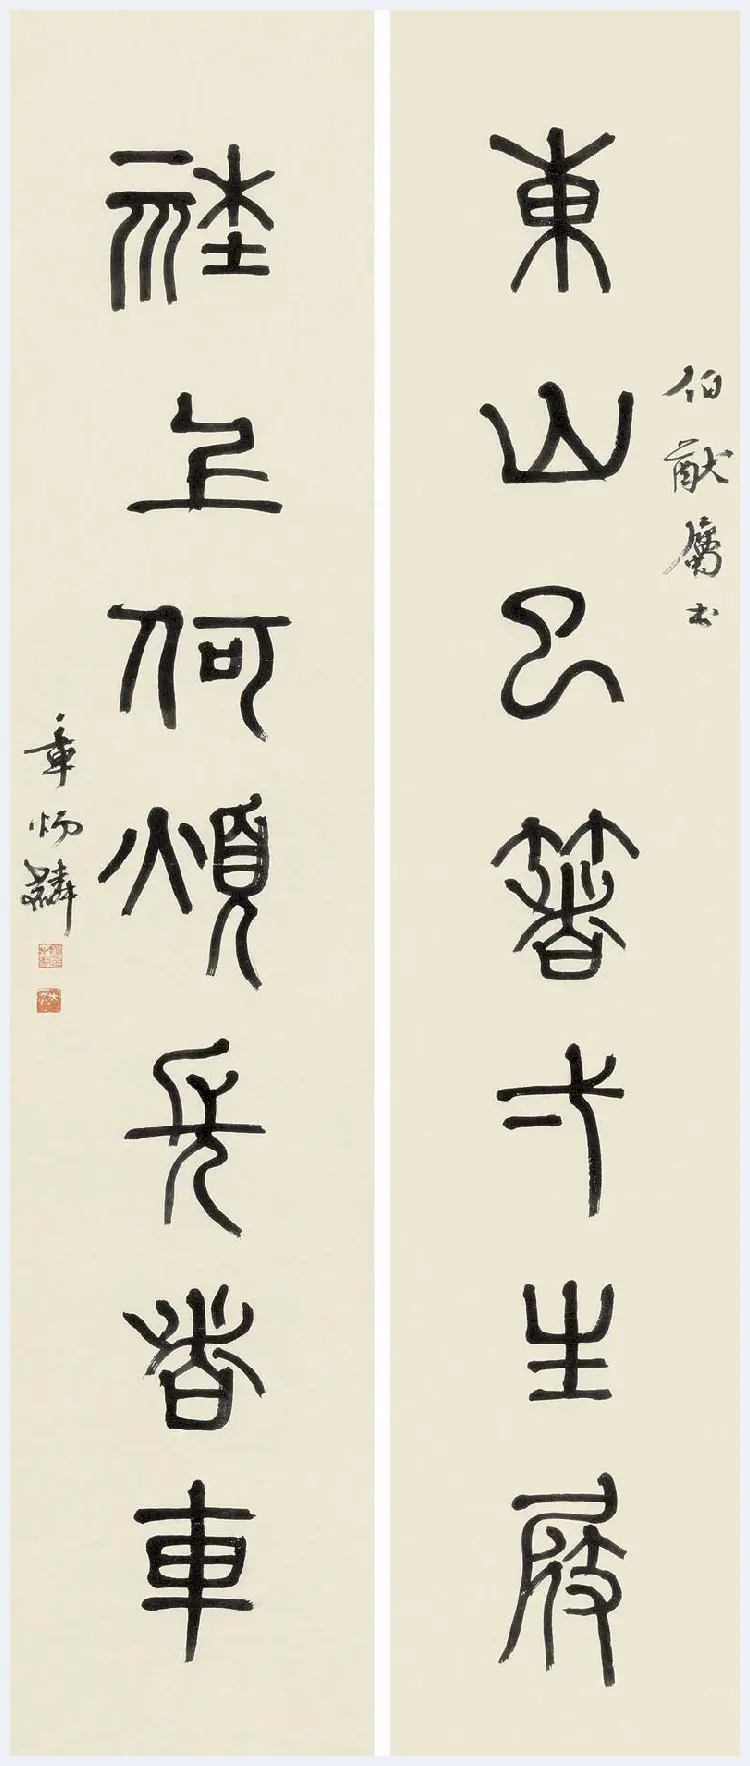 東山已箸生屐
伯猷屬書
社上何煩長者車
章炳麟